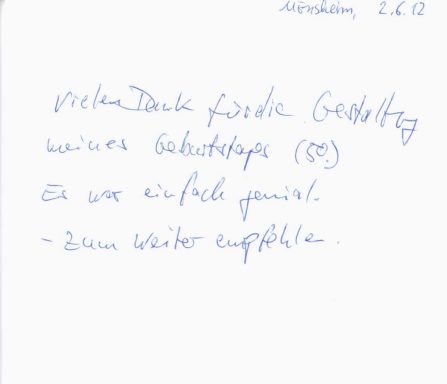 Mönsheim, 2.6.12
Vielen Dank für die Gestaltung
meines Geburtstages (50.)
Es war einfach genial.
- Zum Weiter empfehlen.